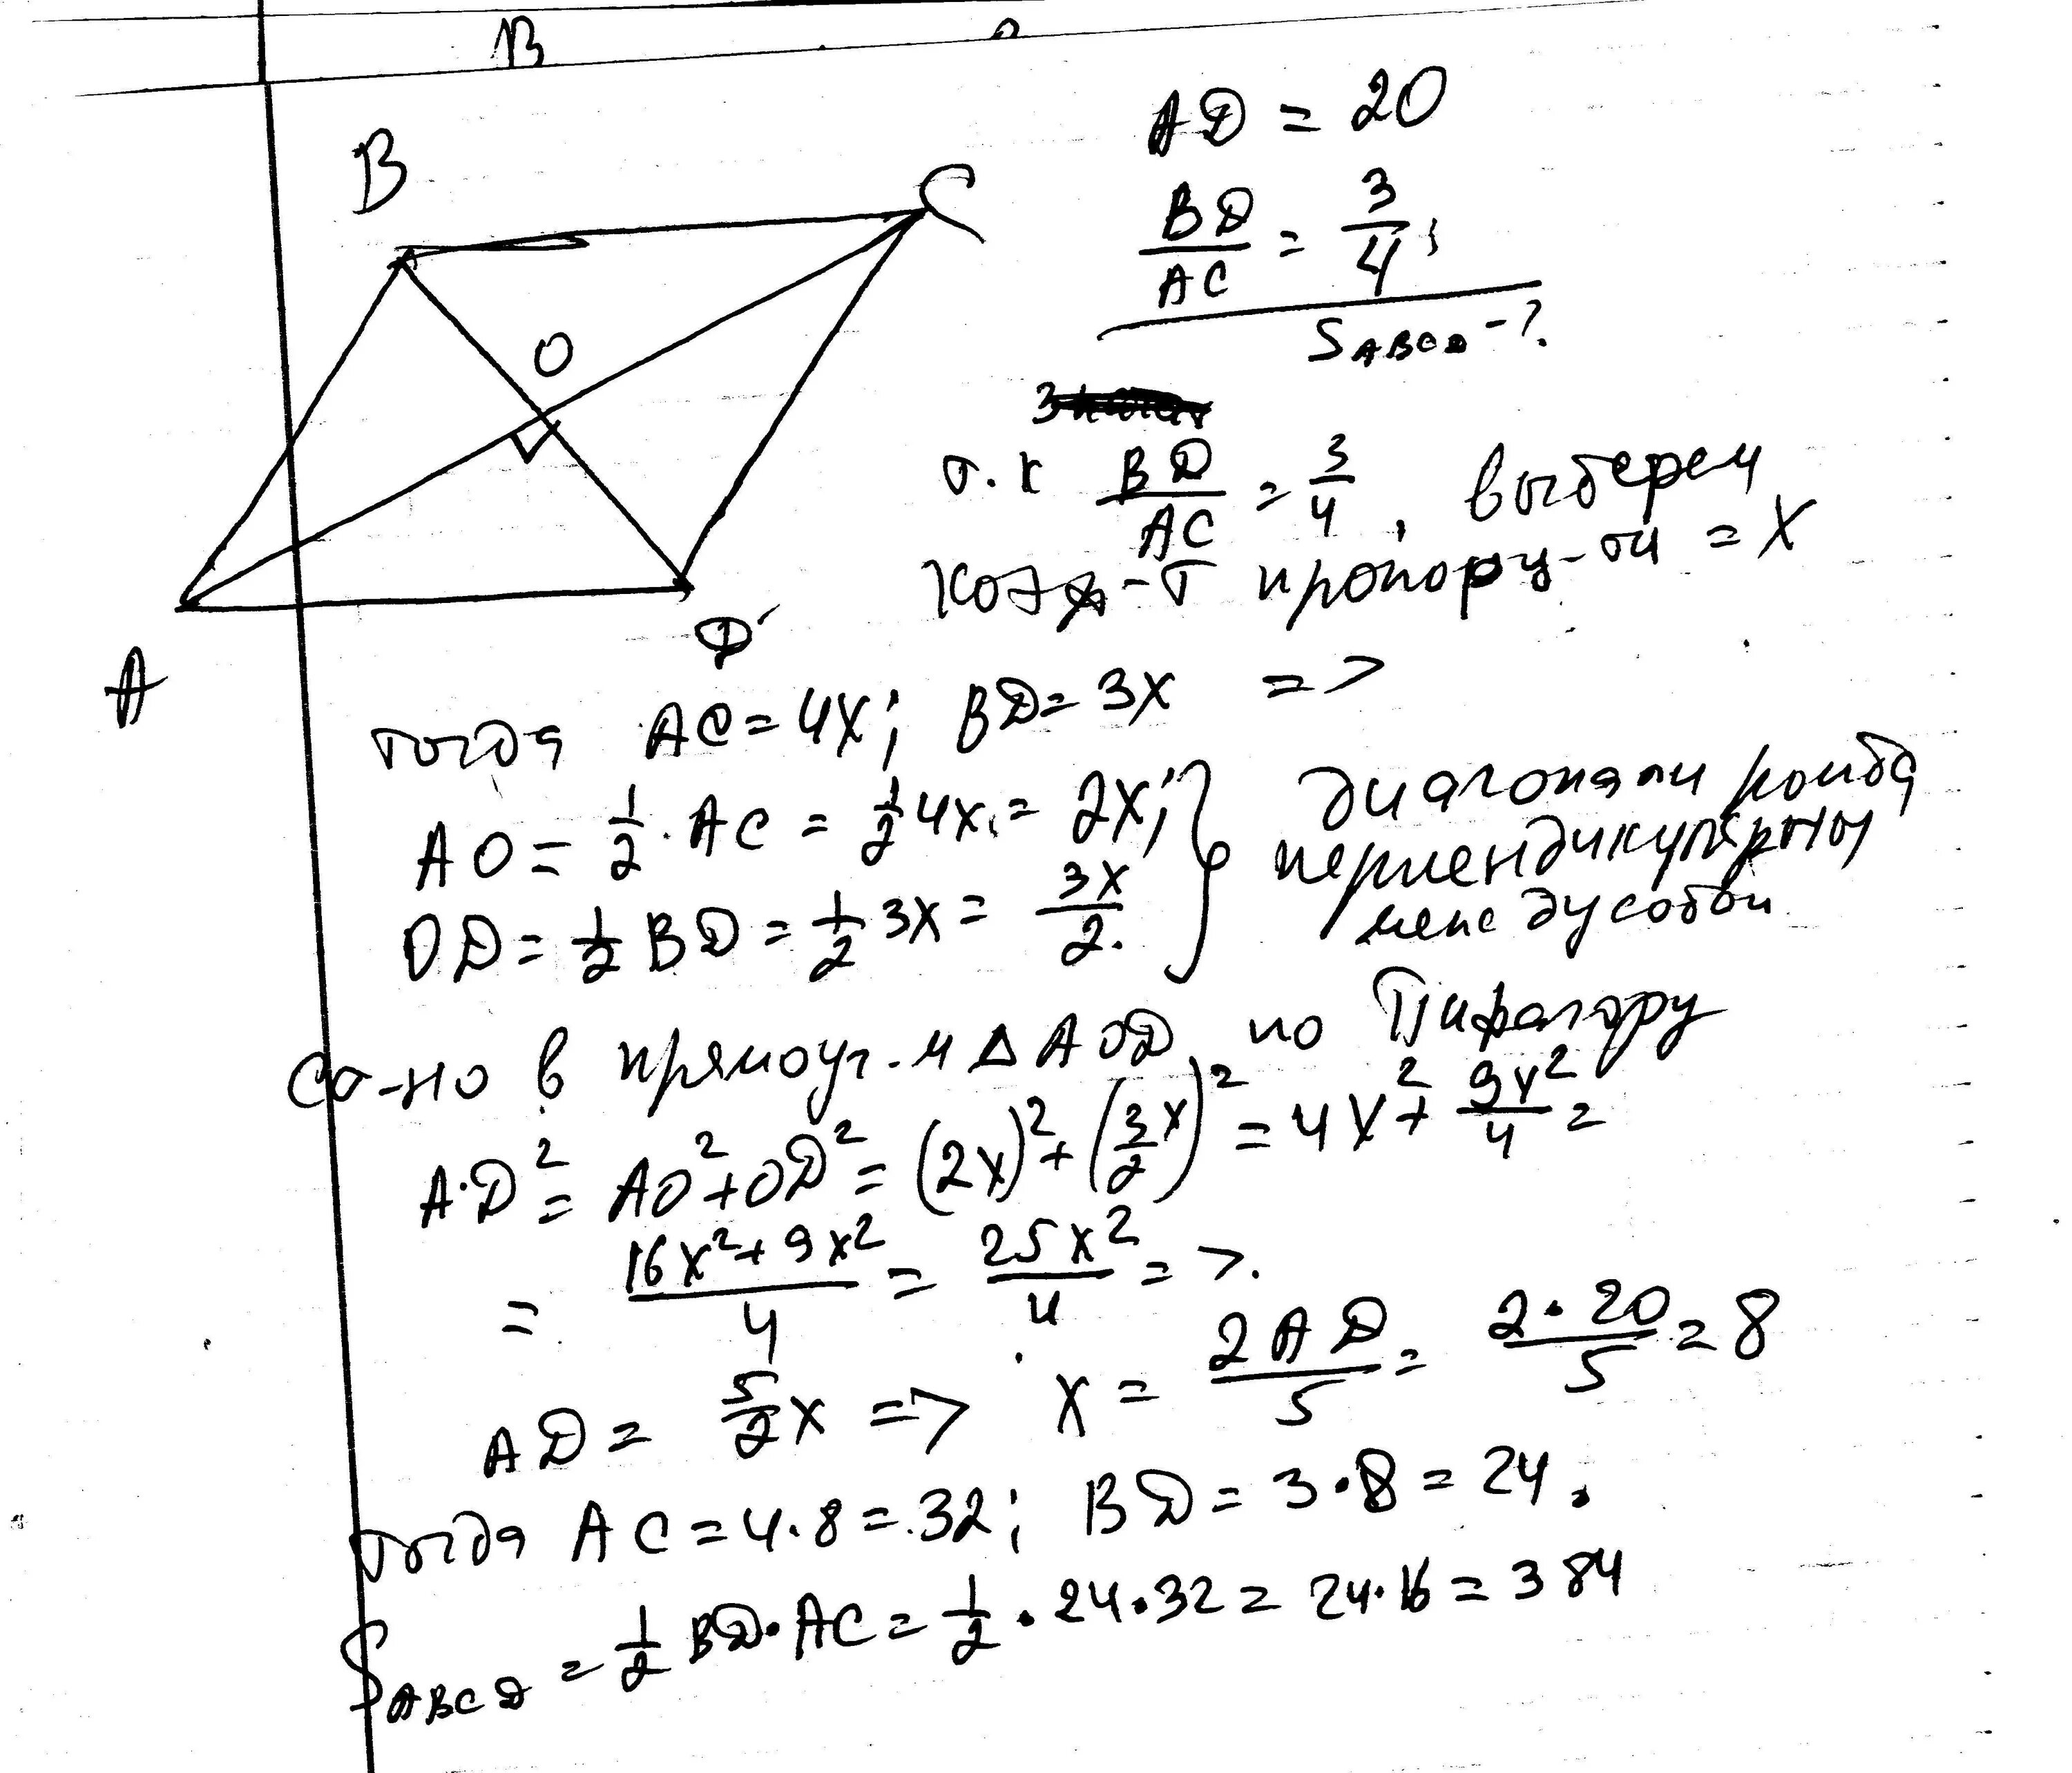 B
B
C
O
A
D
AD = 20
BD/AC = 3/4;
S ABCD - ?
т.к BD/AC = 3/4, выберем
коэф-т пропорц-ти = x
тогда AC = 4x; BD = 3x =>
AO = 1/2 · AC = 1/2 4x = 2x; } диагонали ромба
перпендикулярны
OD = 1/2 BD = 1/2 3x = 3x/2. между собой
со-но в прямоуг-м △ AOD по Пифагору
AD² = AO² + OD² = (2x)² + (3/2 x)² = 4x² + 9x²/4 =
= 16x² + 9x²/4 = 25x²/4 =>
AD = 5/2 x => x = 2AD/5 = 2·20/5 = 8
тогда AC = 4·8 = 32; BD = 3·8 = 24.
S ABCD = 1/2 BD·AC = 1/2 · 24·32 = 24·16 = 384